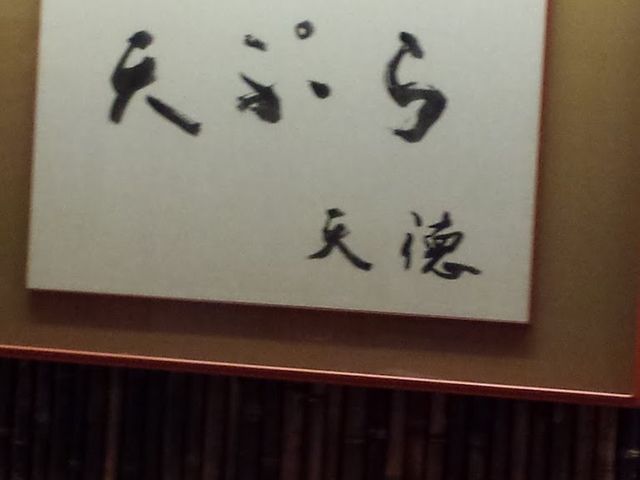 天ぷら
天徳